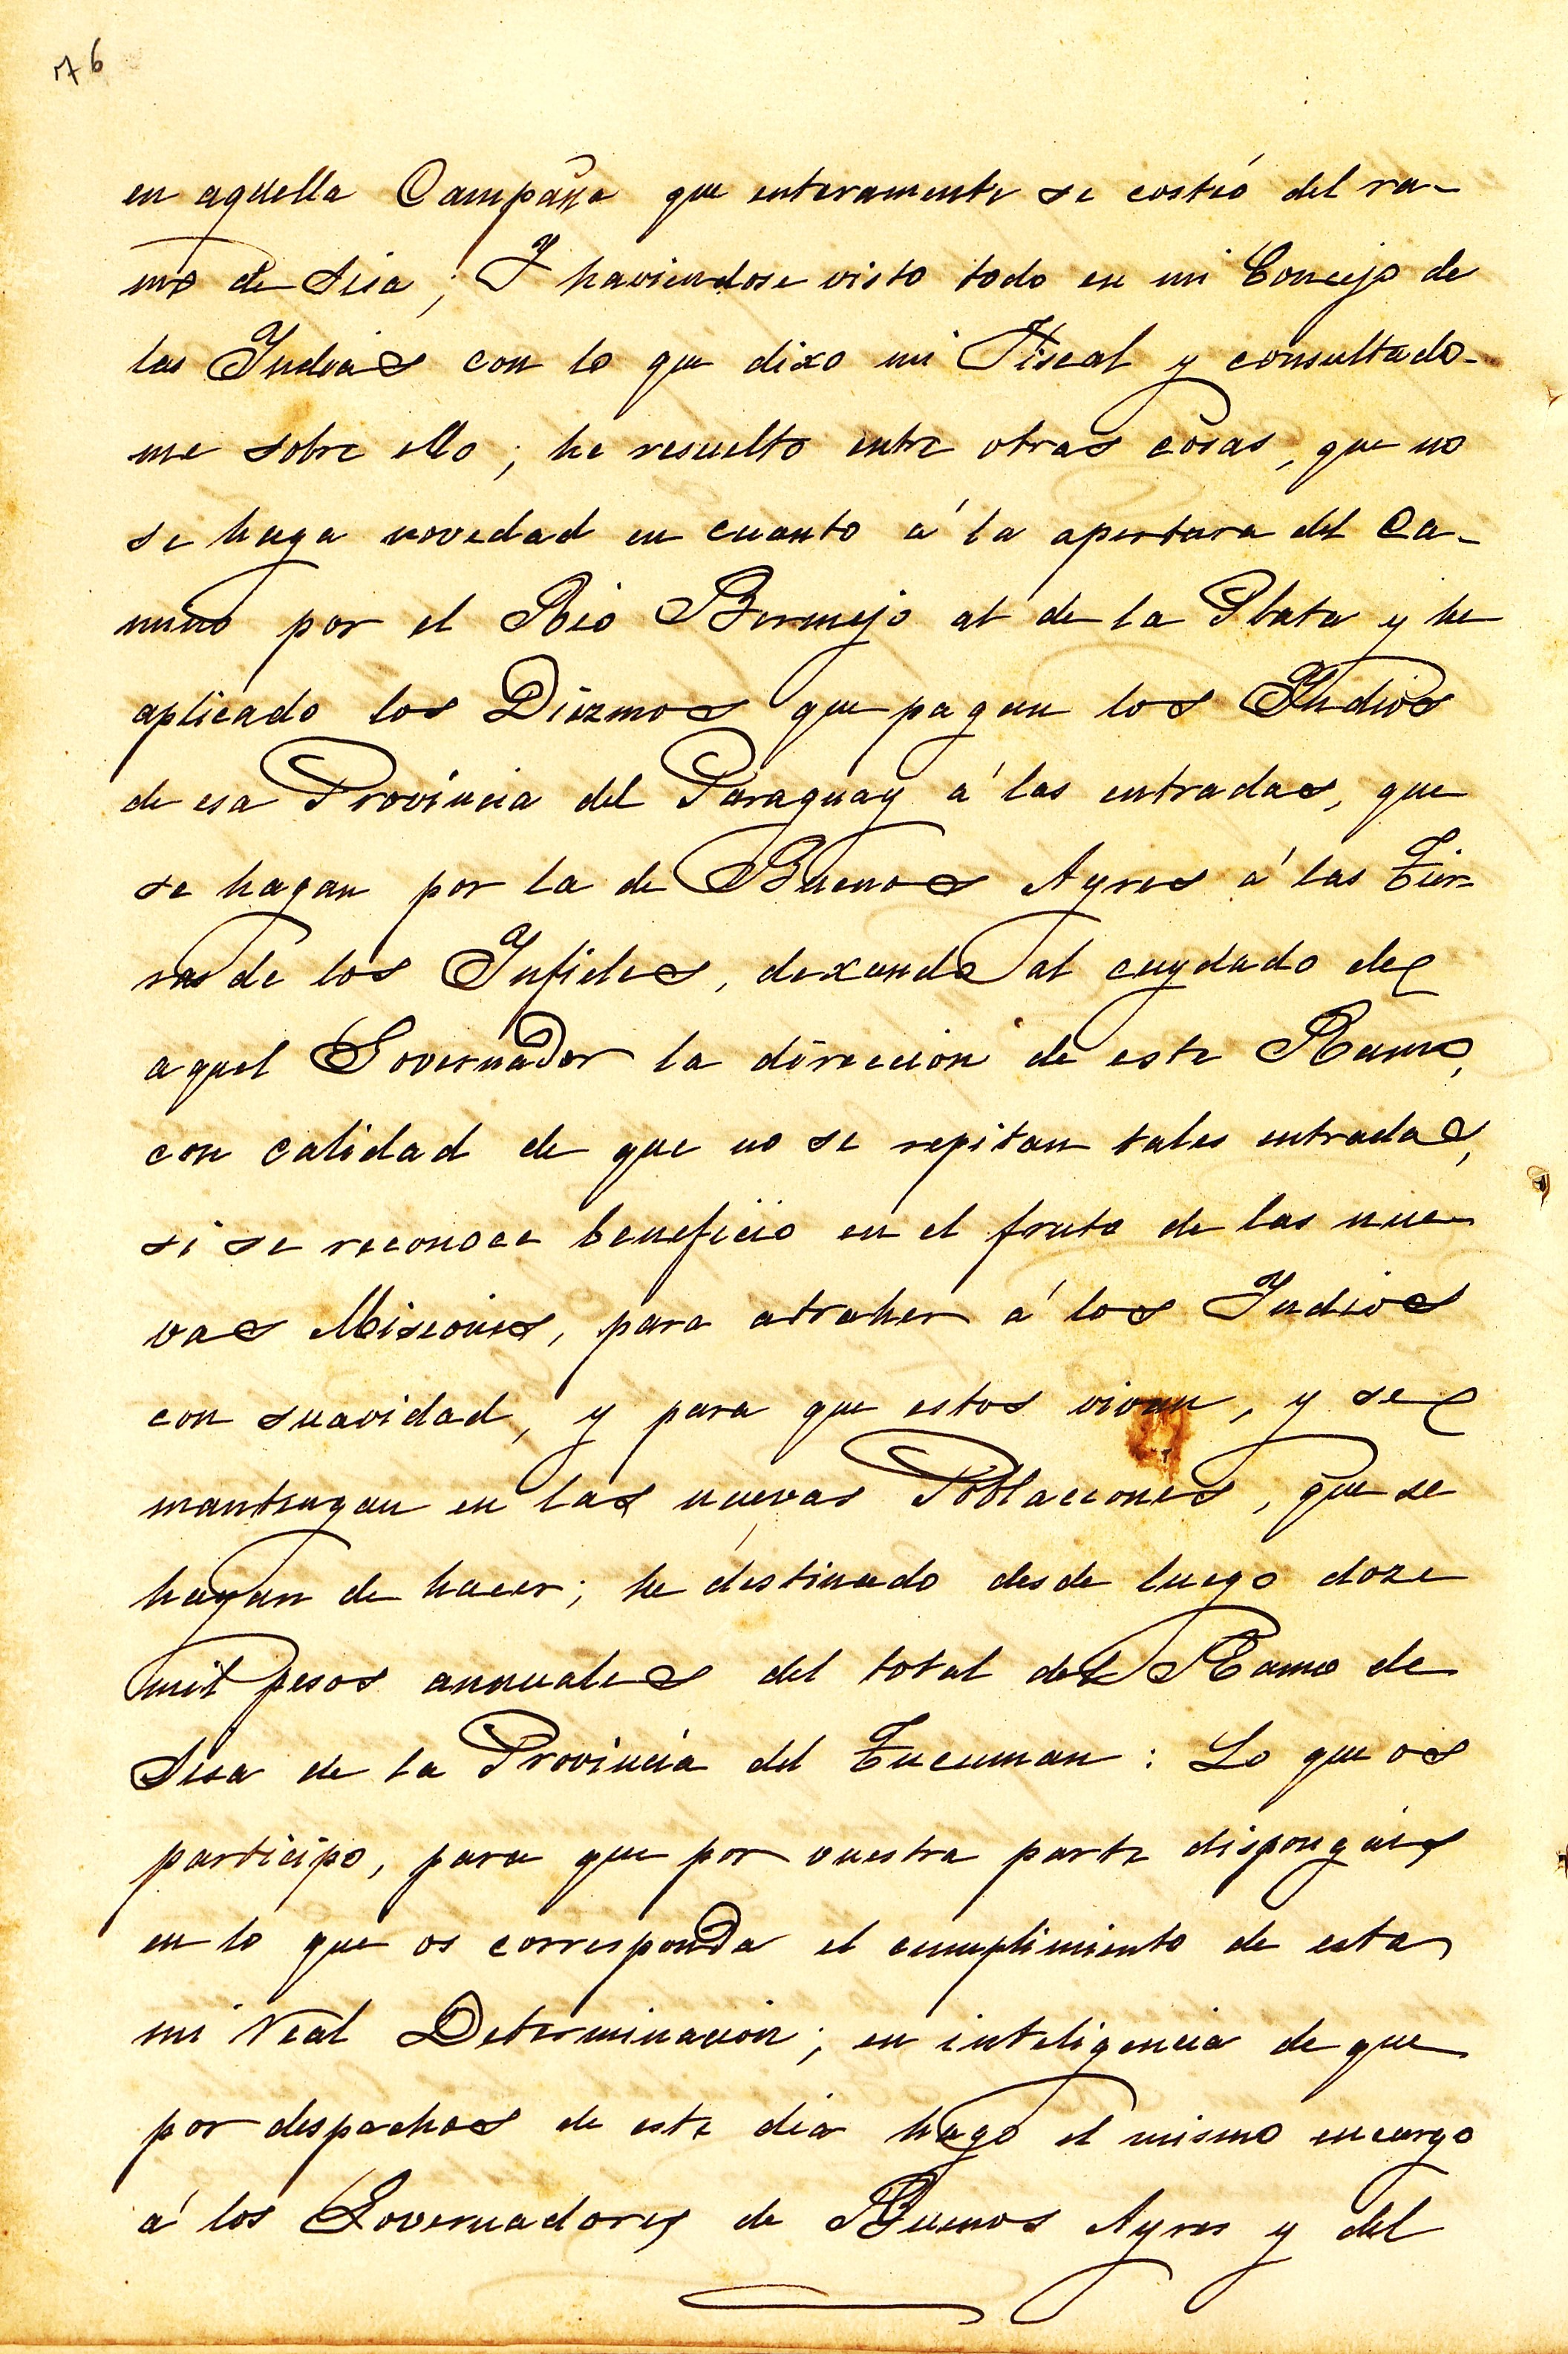 76
en aquella Campaña que enteramente se costeó del ra-
mo de Sisa; Y haviendose visto todo en mi Concejo de
las Indias con lo que dixo mi Fiscal y consultado-
me sobre ello; he resuelto entre otras cosas, que no
se haga novedad en cuanto á la apertura del Ca-
mino por el Rio Bermejo al de la Plata y he
aplicado los Diezmos que pagan los Indios
de esa Provincia del Paraguay á las entradas, que
se hagan por la de Buenos Ayres á las Tier-
ras de los Infieles, dexando al cuydado de
aquel Governador la direccion de este Ramo,
con calidad de que no se repitan tales entradas,
si se reconoce beneficio en el fruto de las nue-
vas Misiones, para atraher á los Indios
con suavidad, y para que estos vivan, y se
mantengan en las nuevas Poblaciones, que se
hayan de hacer; he destinado desde luego doze
mil pesos annuales del total del Ramo de
Sisa de la Provincia del Tucuman: Lo que os
participo, para que por vuestra parte dispongais
en lo que os corresponda el cumplimiento de esta
mi real Determinacion; en inteligencia de que
por despachos de este dia hago el mismo encargo
á los Governadores de Buenos Ayres y del